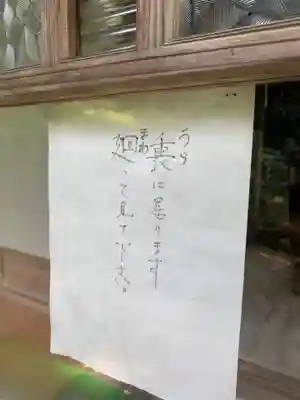 うら
裏に居ります
まわ
廻って見て下さい。